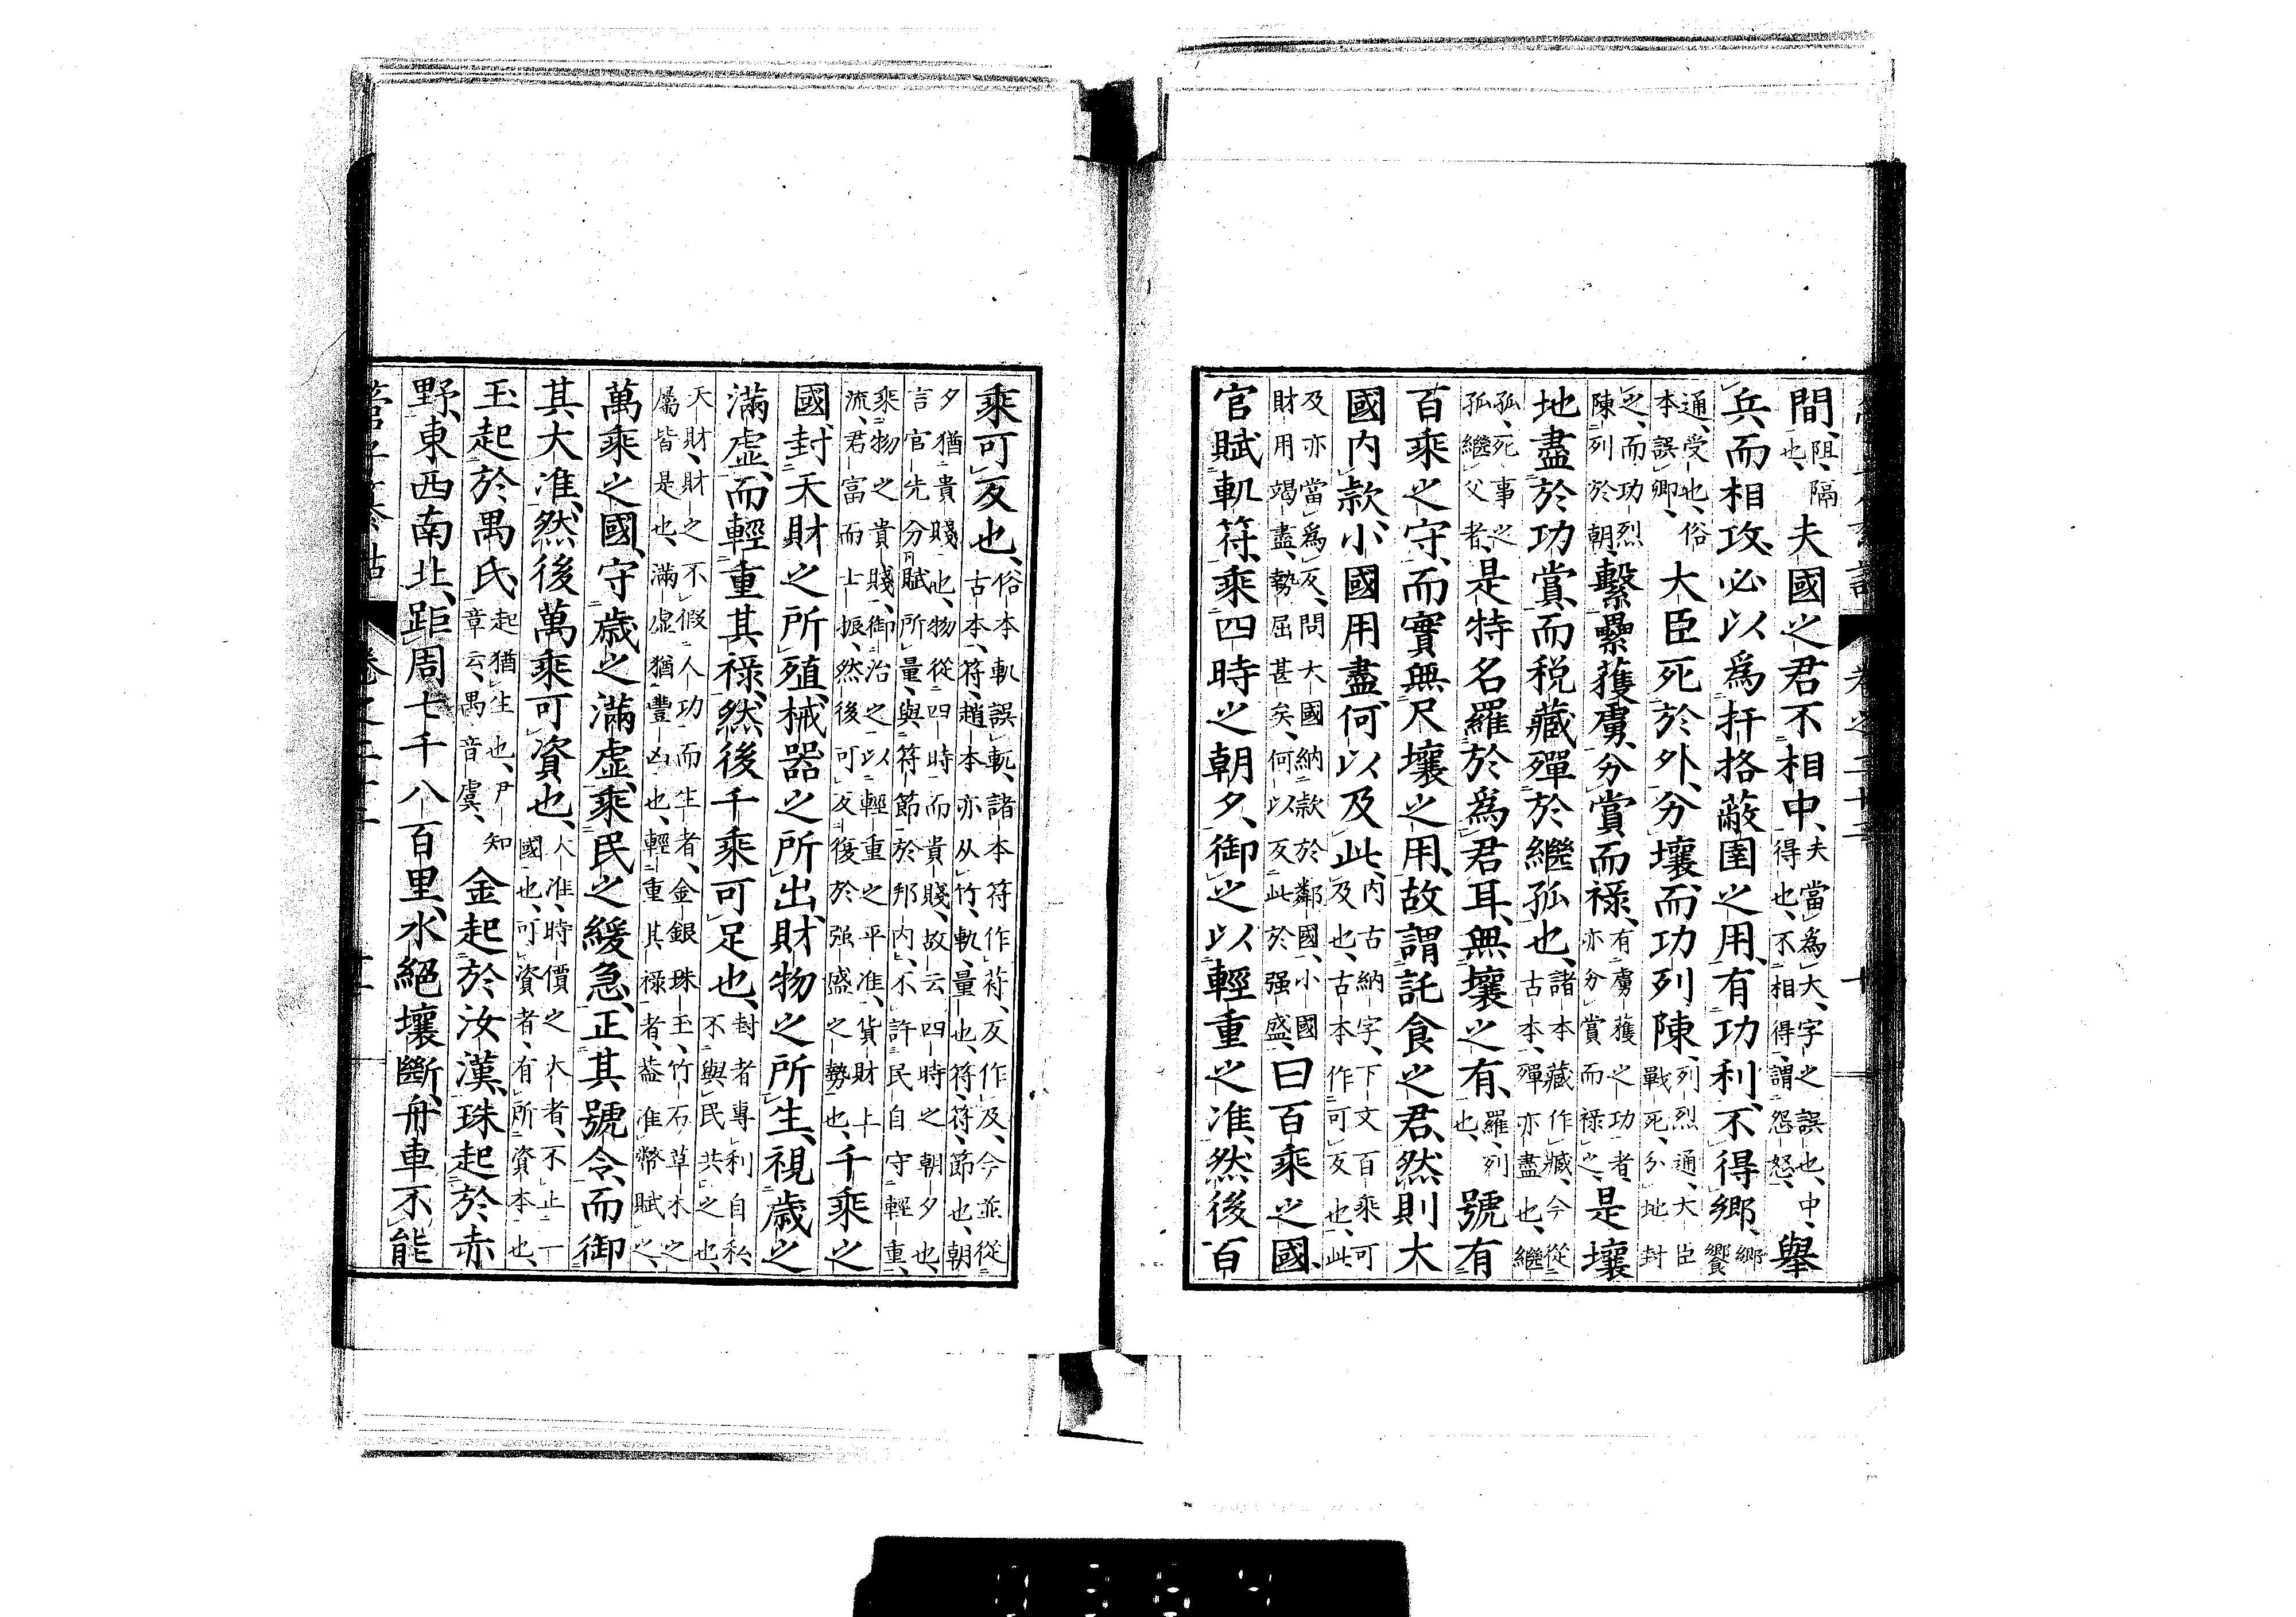 間、阻、隔
也、夫國之君不相中、夫當爲大、字之誤也、中、
得也、不相得、謂怨怒、舉
兵而相攻、必以爲扞格蔽圉之用、有功利、不得鄉、鄉
饗
通、受也、俗
本誤卿、大臣死於外、分壤而功列陳、列烈通、大臣
戰死、分地封
之、而功烈
陳列於朝、繫纍獲虜、分賞而祿、有虜獲之功者、
亦分賞而祿之、是壤
地盡於功賞、而税藏殫於繼孤也、諸本藏作臧、今從
古本、殫亦盡也、繼
孤、死事之
孤繼父者、是特名羅於爲君耳、無壤之有、羅、列
也、號有
百乘之守、而實無尺壤之用、故謂託食之君、然則大
國内款、小國用盡、何以及此、内古納字、下文百乘可
及也、古本作可反也、此
及亦當爲反、問大國納款於鄰國、小國
財用竭盡、勢屈甚矣、何以反此於强盛、曰百乘之國、
官賦軌符、乘四時之朝夕、御之以輕重之准、然後百
乘可反也、俗本軌誤軏、諸本符作苻、反作及、今並從
古本、符、趙本亦从竹、軌、量也、符、符節也、朝
夕猶貴賤也、物從四時而貴賤、故云四時之朝夕也、
言官先分賦所量、與符節於邦内、不許民自守輕重、
乘物之貴賤、御治之以輕重之平准、貨財上
流、君富而士振、然後可反復於强盛之勢也、千乘之
國、封天財之所殖、械器之所出、財物之所生、視歳之
滿虚、而輕重其祿、然後千乘可足也、封者專利自私、
不與民共之也、
天財、財之不假人功而生者、金銀珠玉、竹石草木之
屬皆是也、滿虚猶豐凶也、輕重其祿者、葢准幣賦之、
萬乘之國、守歳之滿虚、乘民之緩急、正其號令、而御
其大准、然後萬乘可資也、大准、時價之大者、不止一
國也、可資者、有所資本也、
玉起於禺氏、起猶生也、尹知
章云、禺音虞、金起於汝漢、珠起於赤
野、東西南北、距周七千八百里、水絶壤斷、舟車不能